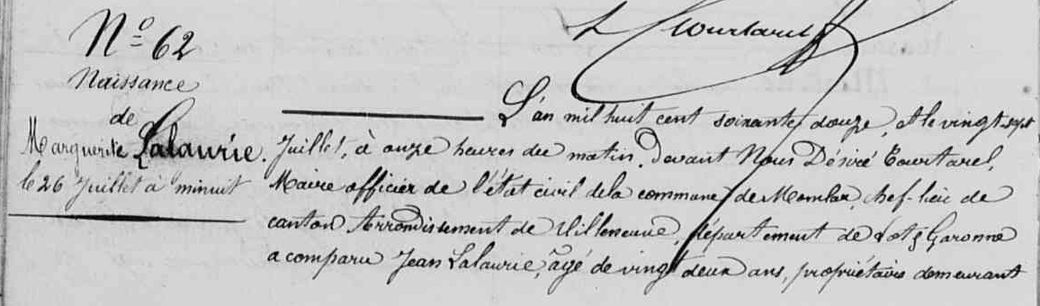 N° 62
Naissance
de
Marguerite Lalaurie.
le 26 Juillet à minuit
L'an mil huit cent soixante douze, et le vingt sept
Juillet, à onze heures du matin. Devant Nous Désiré Courtarel,
Maire officier de l'état civil de la commune de Monclar, chef-lieu de
canton Arrondissement de Villeneuve, département de Lot & Garonne
a comparu Jean Lalaurie, âgé de vingt deux ans, propriétaire demeurant